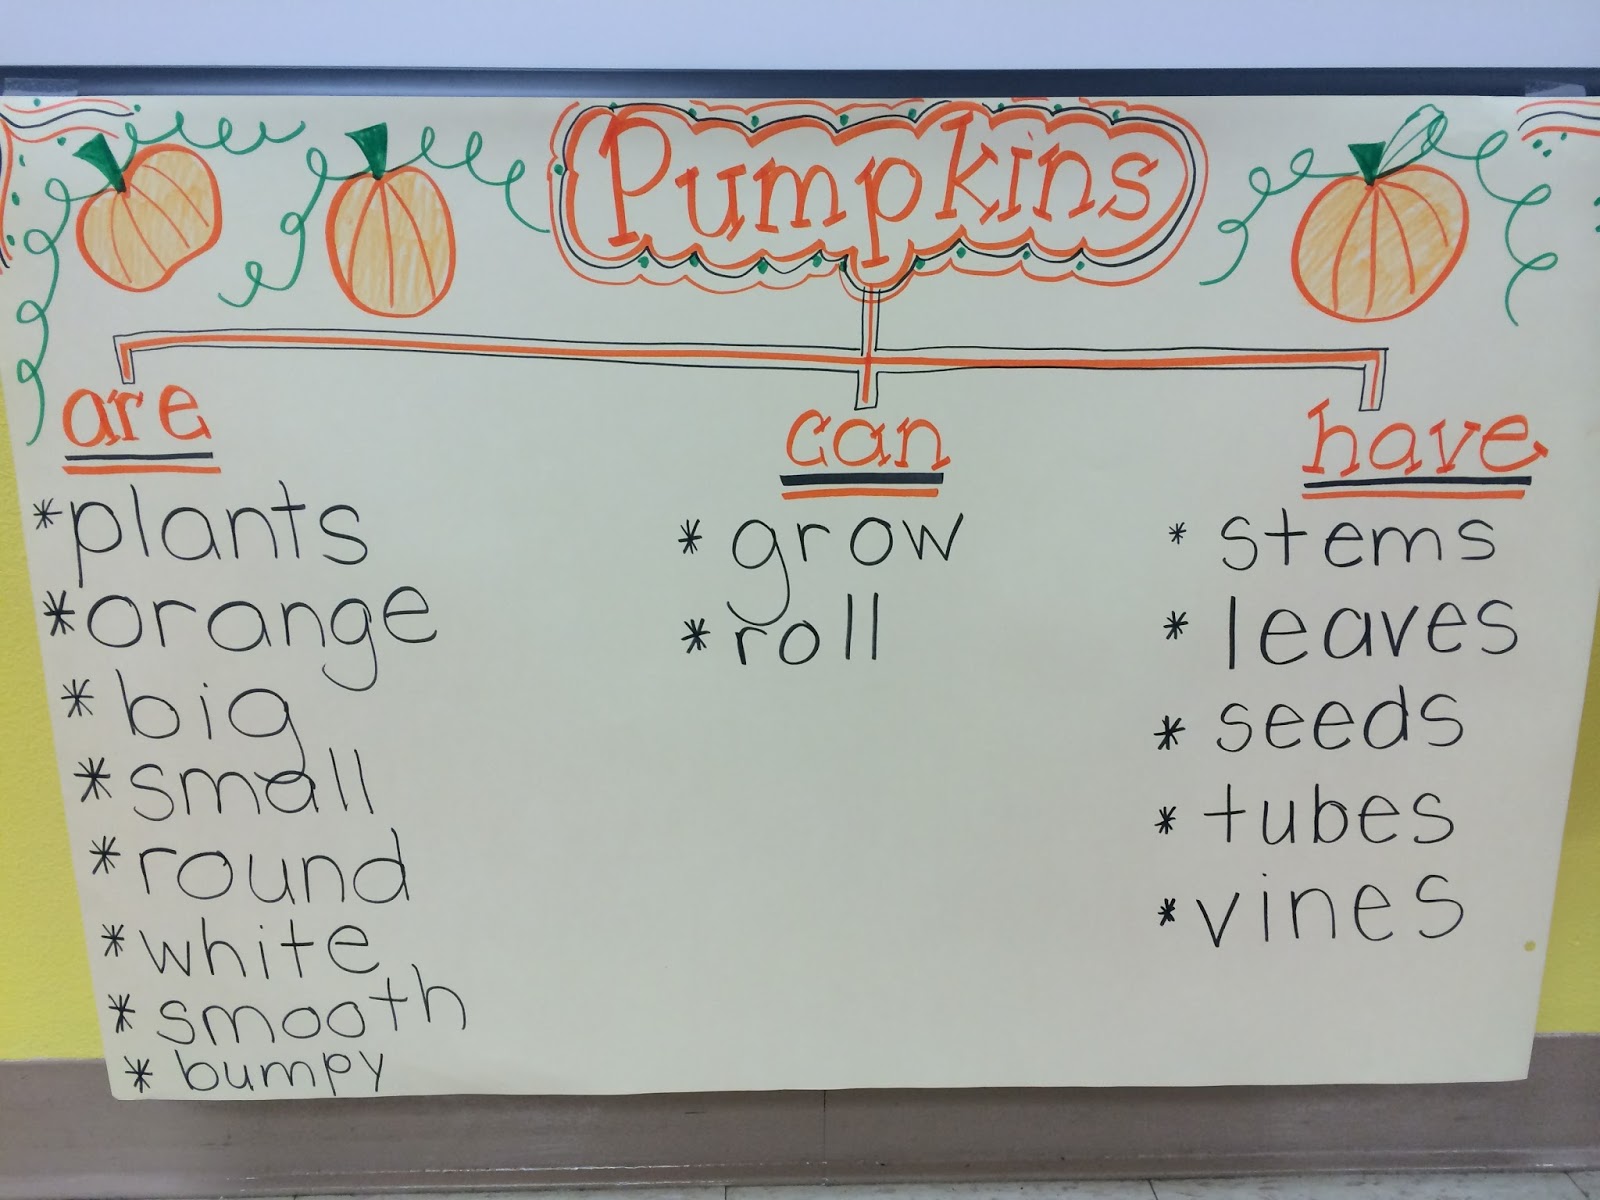 Pumpkins
are
*plants
*orange
*big
*small
*round
*white
*smooth
*bumpy
can
*grow
*roll
have
*stems
*leaves
*seeds
*tubes
*vines